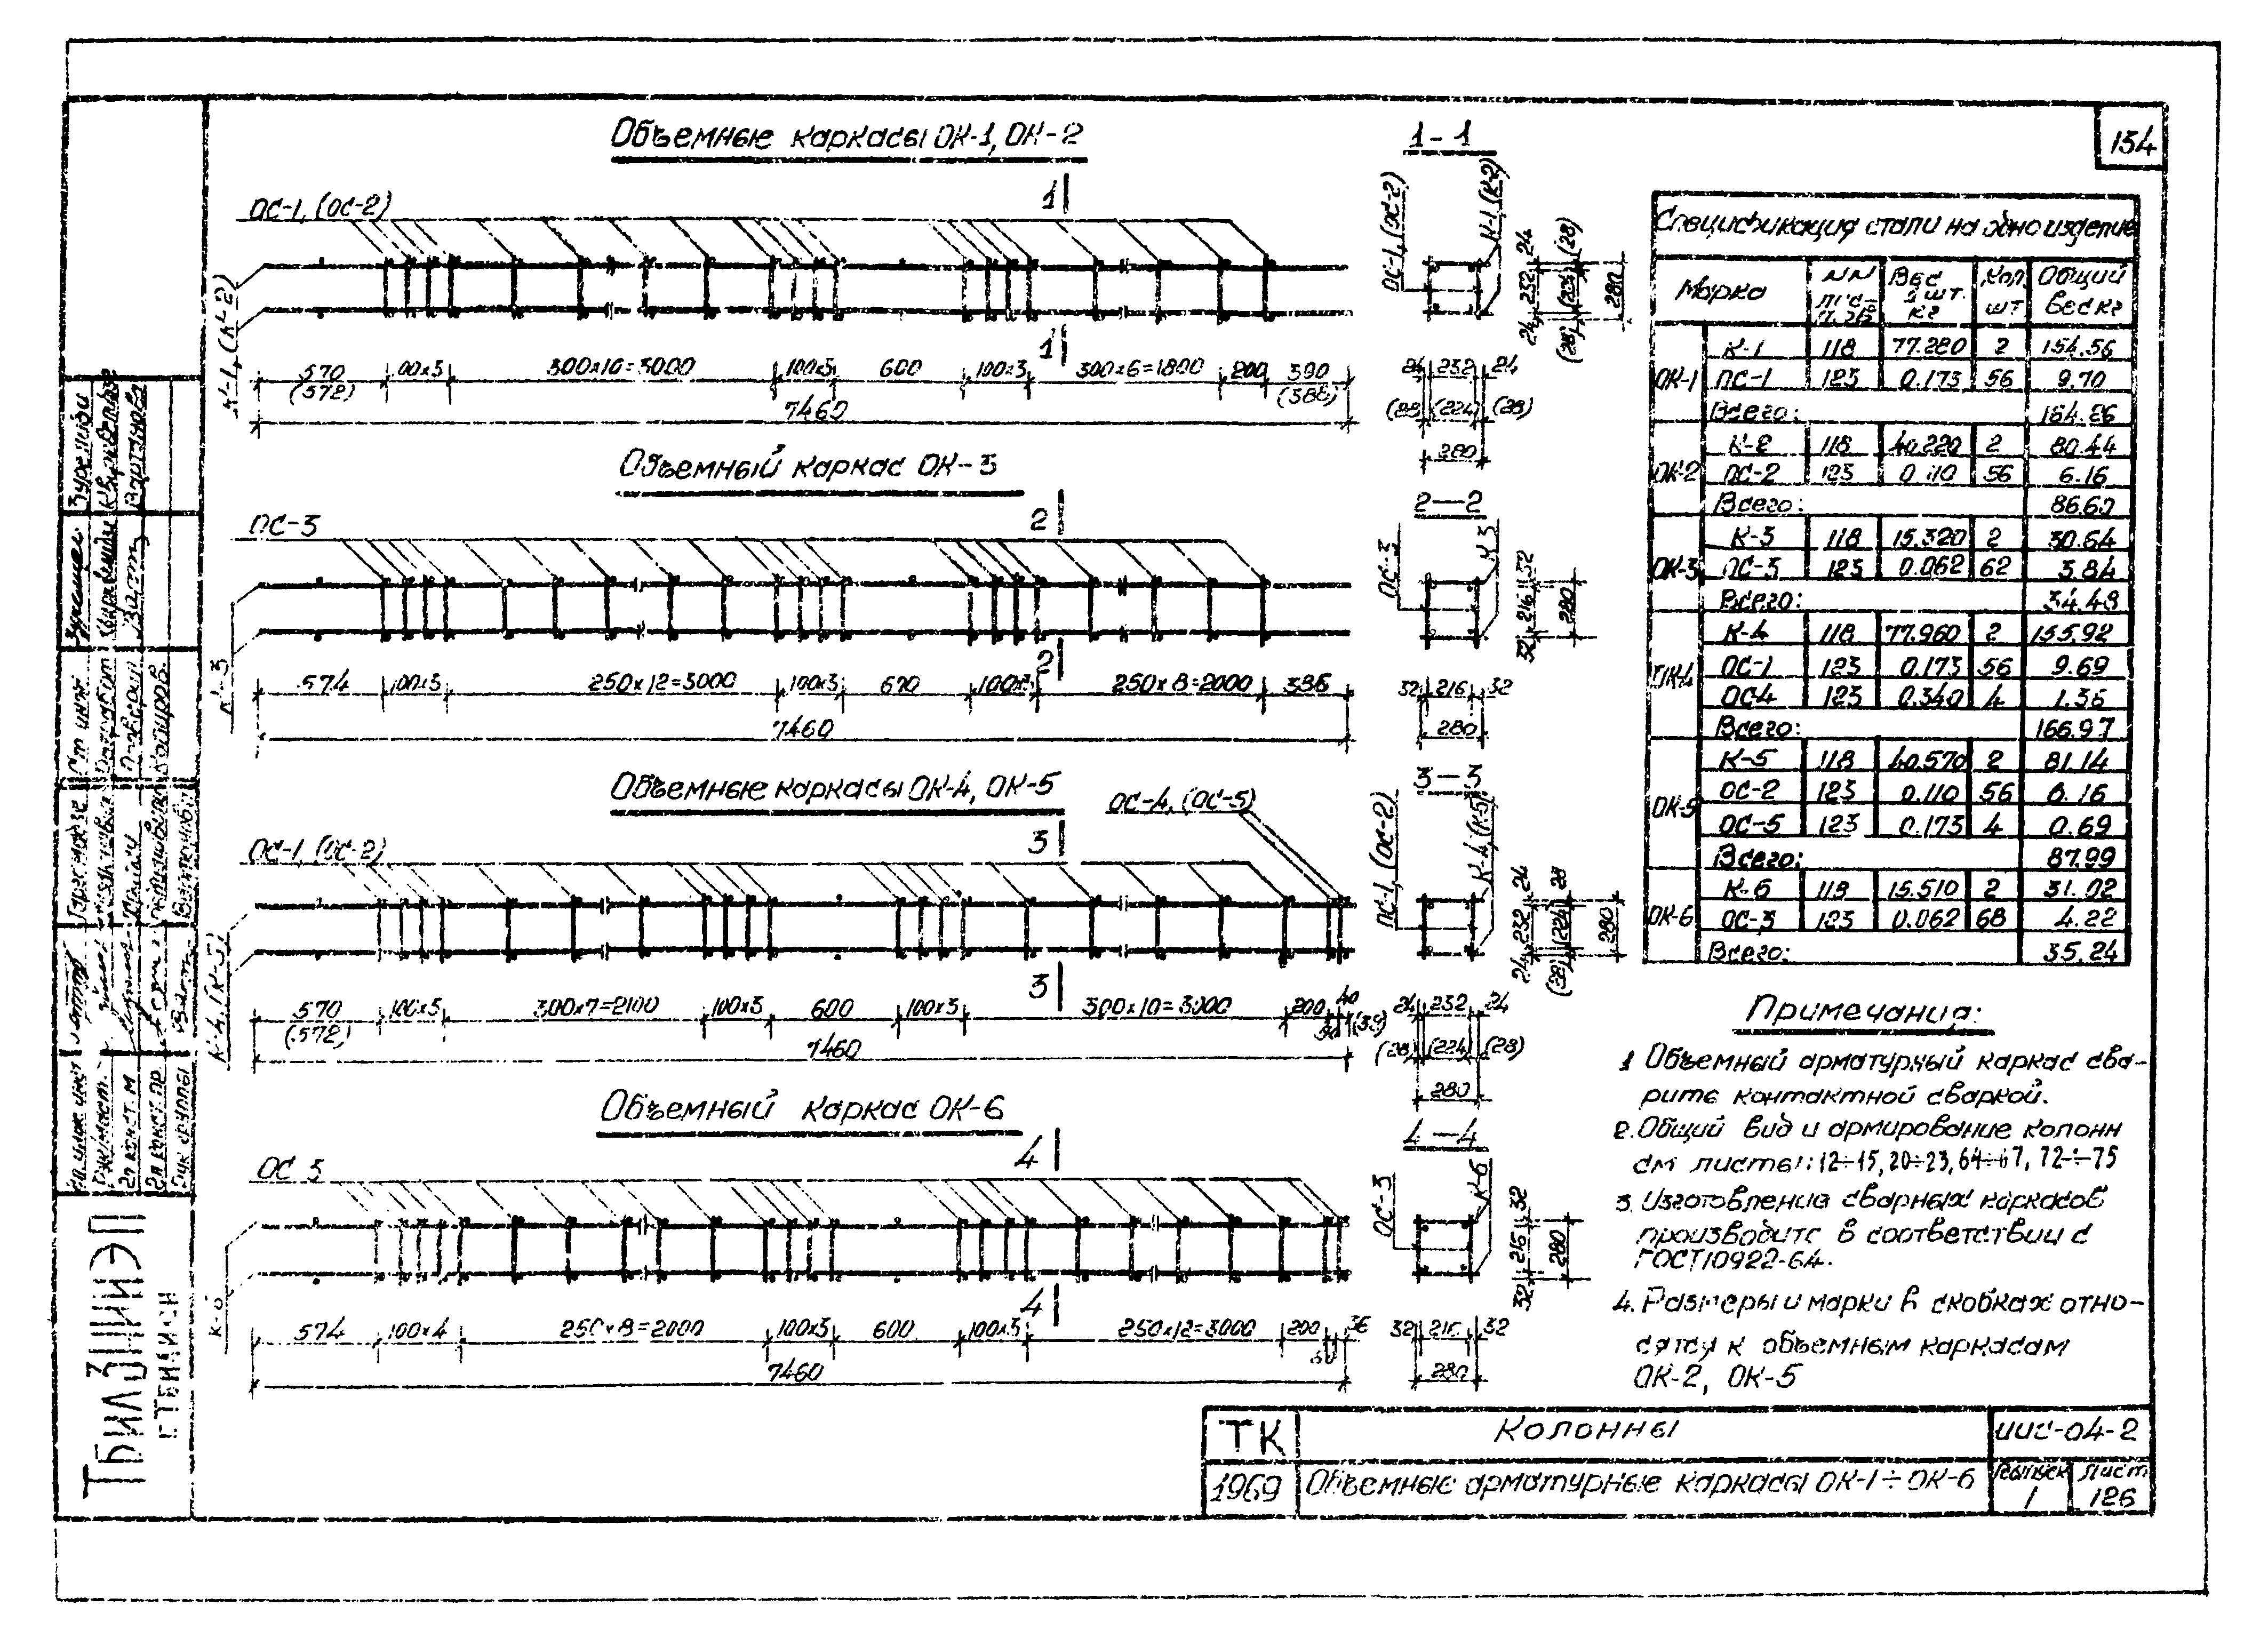 154
Объемные каркасы ОК-1, ОК-2
ОС-1, (ОС-2)
1
К-1, (К-2)
1
570 100х3 300х10=3000 100х3 600 100х3 300х6=1800 200 390
(572) (388)
7460
1-1
ОС-1, (ОС-2)
К-1, (К-2)
24 232 24
(28) (224) (28)
280
24 232 24
(28) (224) (28)
280
Объемный каркас ОК-3
ОС-3
2
К-3
2
574 100х3 250х12=3000 100х3 600 100х3 250х8=2000 386
7460
2-2
ОС-3
К-3
32 216 32
280
32 216 32
280
Объемные каркасы ОК-4, ОК-5
ОС-4, (ОС-5)
ОС-1, (ОС-2)
3
К-4, (К-5)
3
570 100х3 300х7=2100 100х3 600 100х3 300х10=3000 200 40
(572) (38)
7460
3-3
ОС-1, (ОС-2)
К-4, (К-5)
24 232 24
(28) (224) 28
280
24 232 24
(28) (224) (28)
280
Объемный каркас ОК-6
ОС-3
4
К-6
4
574 100х4 250х8=2000 100х3 600 100х3 250х12=3000 200 36
7460
4-4
ОС-3
К-6
32 216 32
280
32 216 32
280
Спецификация стали на одно изделие
Марка NN Вес 1 шт. кг Кол. шт Общий вес кг
ОК-1
К-1 118 77.280 2 154.56
ОС-1 123 0.173 56 9.70
Всего: 164.26
ОК-2
К-2 118 40.220 2 80.44
ОС-2 123 0.110 56 6.16
Всего: 86.60
ОК-3
К-3 118 15.320 2 30.64
ОС-3 123 0.062 62 3.84
Всего: 34.48
ОК-4
К-4 118 77.960 2 155.92
ОС-1 123 0.173 56 9.69
ОС4 123 0.340 4 1.36
Всего: 166.97
ОК-5
К-5 118 40.570 2 81.14
ОС-2 123 0.110 56 6.16
ОС-5 123 0.173 4 0.69
Всего: 87.99
ОК-6
К-6 118 15.510 2 31.02
ОС-3 123 0.062 68 4.22
Всего: 35.24
Примечания:
1 Объемный арматурный каркас сва-
рить контактной сваркой.
2. Общий вид и армирование колонн
см листы: 12÷15, 20÷23, 64÷67, 72÷75
3. Изготовление сварных каркасов
производить в соответствии с
ГОСТ10922-64.
4. Размеры и марки в скобках отно-
сятся к объемным каркасам
ОК-2, ОК-5
ТК
Колонны
ИИС-04-2
1969
Объемные арматурные каркасы ОК-1÷ОК-6
Выпуск 1
Лист 126
ТбилЗНИИЭП
г. Тбилиси